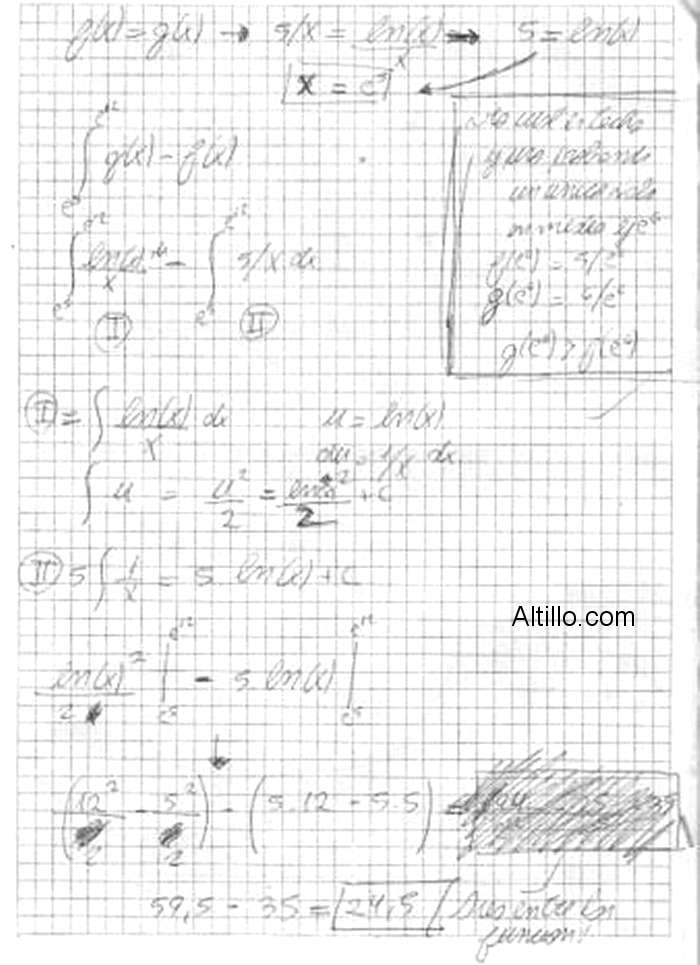 f(x) = g(x) → 5/x = ln(x)/x → 5 = ln(x)
x = e⁵
∫_{e⁵}^{e¹²} g(x) - f(x)
∫_{e⁵}^{e¹²} ln(x)/x dx - ∫_{e⁵}^{e¹²} 5/x dx
I II
en medio ej e⁶
f(e⁶) = 5/e⁶
g(e⁶) = 6/e⁶
g(e⁶) > f(e⁶)
I = ∫ ln(x)/x dx u = ln(x)
du = 1/x dx
∫ u = u²/2 = ln(x)²/2 + C
II 5 ∫ 1/x = 5 ln(x) + C
Altillo.com
ln(x)²/2 |_{e⁵}^{e¹²} - 5 ln(x) |_{e⁵}^{e¹²}
↓
(12²/2 - 5²/2) - (5.12 - 5.5) =
59,5 - 35 = 24,5 entre las